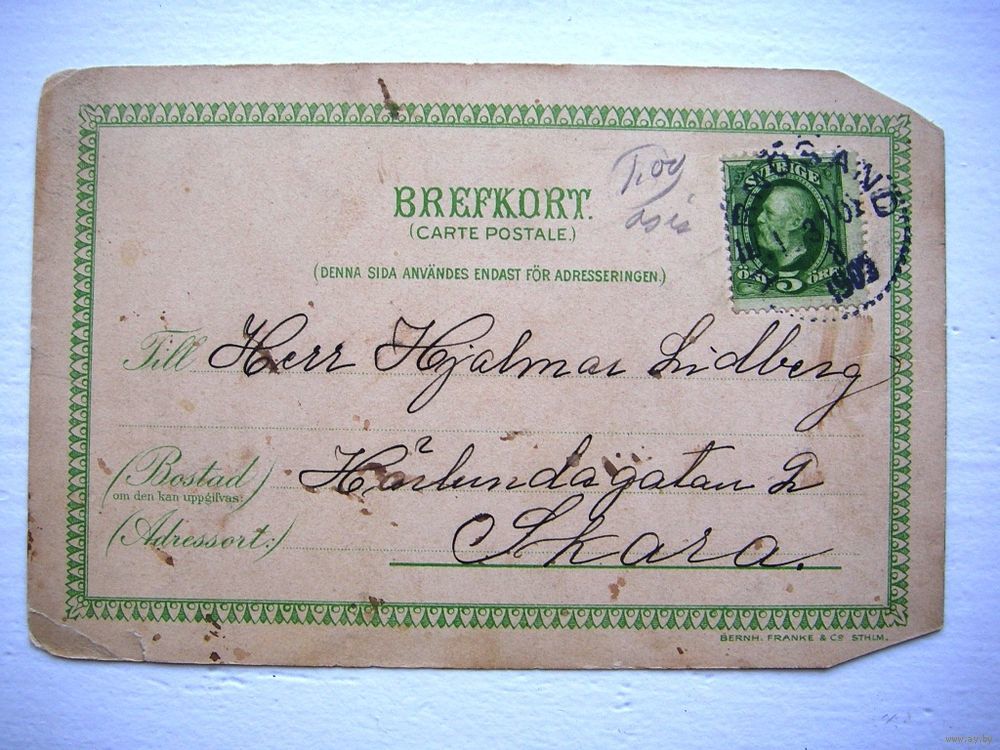 BREFKORT.
(CARTE POSTALE.)
(DENNA SIDA ANVÄNDES ENDAST FÖR ADRESSERINGEN.)
SVERIGE
5 ÖRE
1903
Till Herr Hjalmar Lidberg
(Bostad)
om den kan uppgifvas:
Härlundagatan 2
(Adressort:)
Skara.
BERNH. FRANKE & Co STHLM.
www.ay.by